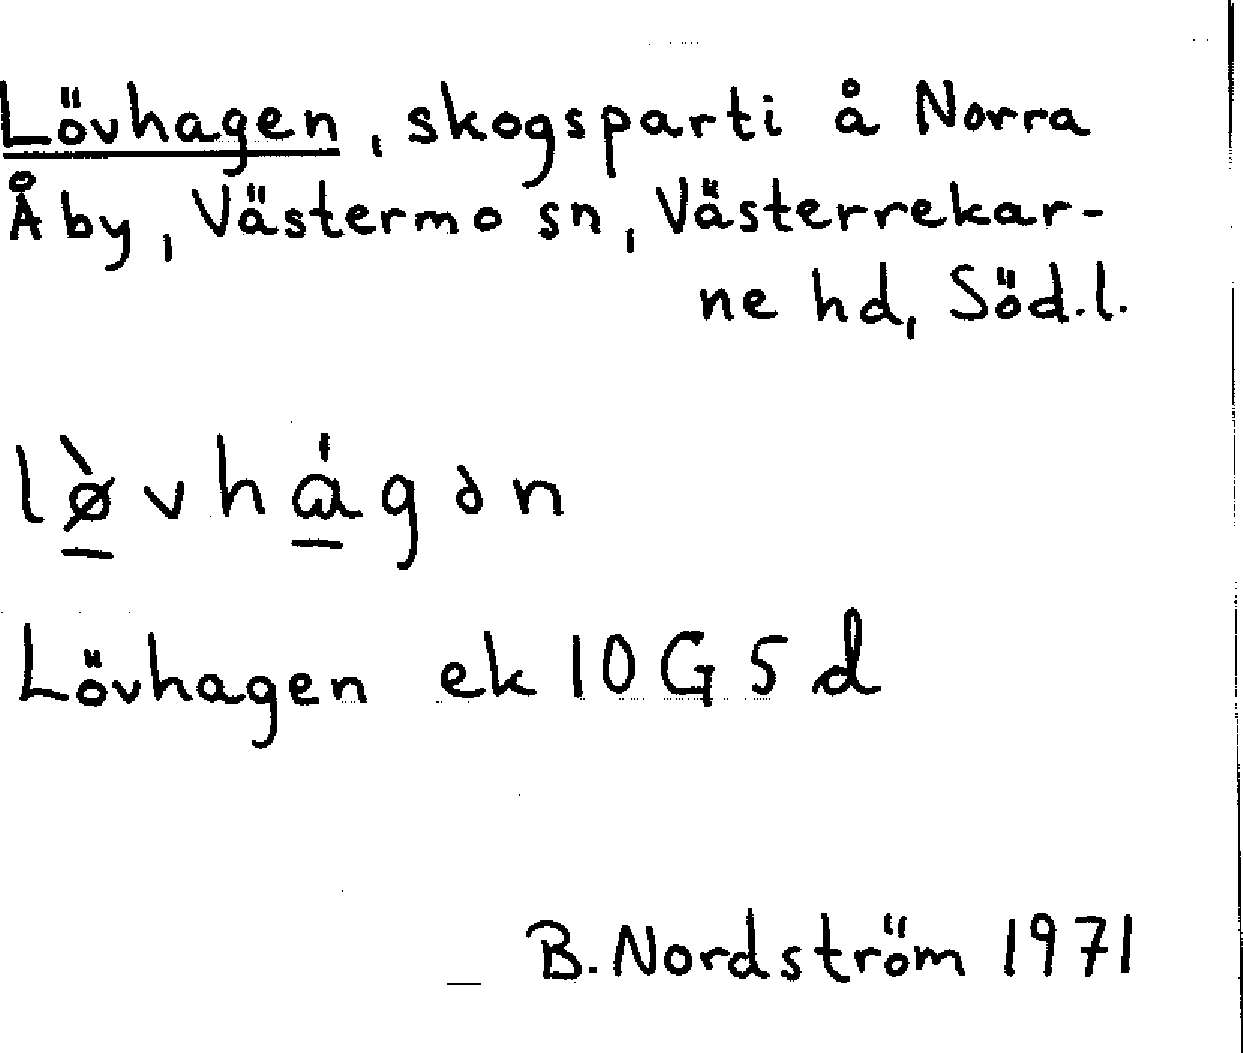 Lövhagen, skogsparti å Norra
Åby, Västermo sn, Västerrekar-
ne hd, Söd.l.
lø̠̀vhɑ̠́gən
Lövhagen ek 10G5d
B. Nordström 1971